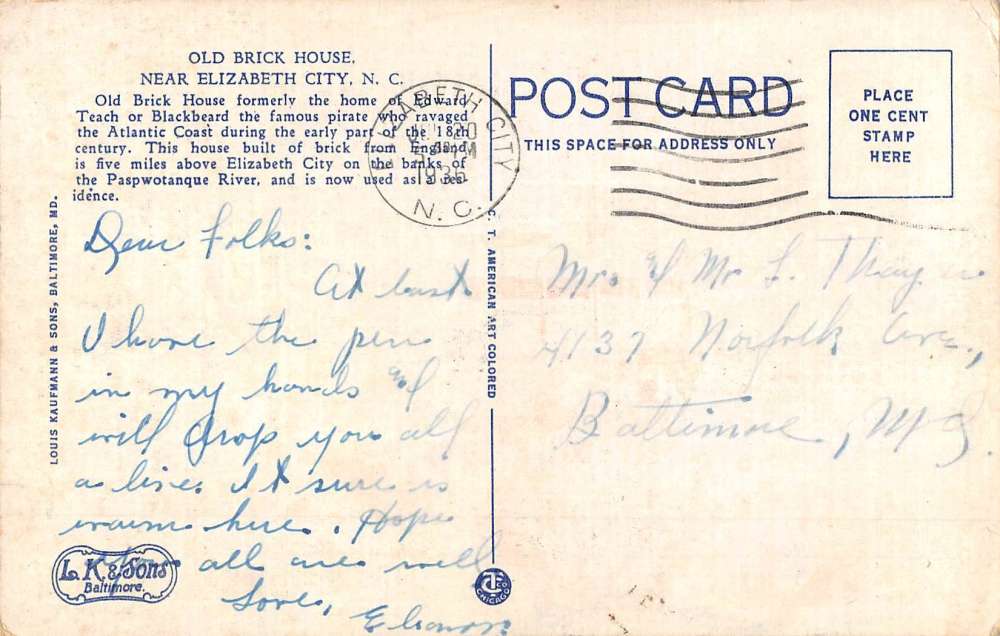 OLD BRICK HOUSE,
NEAR ELIZABETH CITY, N. C.
Old Brick House formerly the home of Edward
Teach or Blackbeard the famous pirate who ravaged
the Atlantic Coast during the early part of the 18th
century. This house built of brick from England
is five miles above Elizabeth City on the banks of
the Paspwotanque River, and is now used as a res-
idence.
LOUIS KAUFMANN & SONS, BALTIMORE, MD.
Dear Folks:
At last
I have the pen
in my hands &
will drop you all
a line. It sure is
warm here. Hope
you all are well
Love,
Eleanor
L. K. & Sons
Baltimore.
C. T. AMERICAN ART COLORED
CHICAGO
ELIZABETH CITY
20
M
1936
N. C.
POST CARD
THIS SPACE FOR ADDRESS ONLY
PLACE
ONE CENT
STAMP
HERE
Mr. & Mr
4137 Norfolk Ave.,
Baltimore, Md.